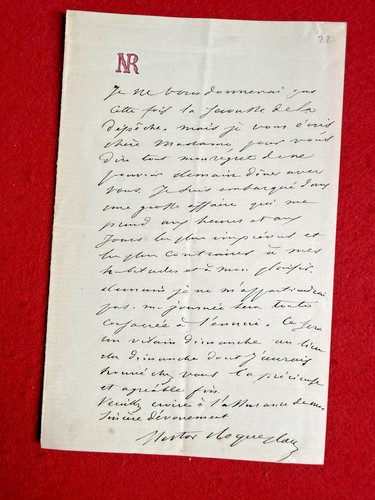 22
NR
Je ne vous donnerai pas
cette fois la secousse de la
dépêche. mais je vous écris
chère Madame, pour vous
dire tout mon regret de ne
pouvoir demain dîner avec
vous. Je suis embarqué dans
une grosse affaire qui me
prend aux heures et aux
jours les plus imprévus et
les plus contraires à mes
habitudes et à mes plaisirs.
demain je ne m'appartiendrai
pas. ma journée sera toute
consacrée à l'ennui. Ce sera
un vilain dimanche au lieu
du dimanche dont j'aurais
trouvé chez vous la précieuse
et agréable fin.
Veuillez croire à l'assurance de mon
sincère dévouement
Nestor Roqueplan